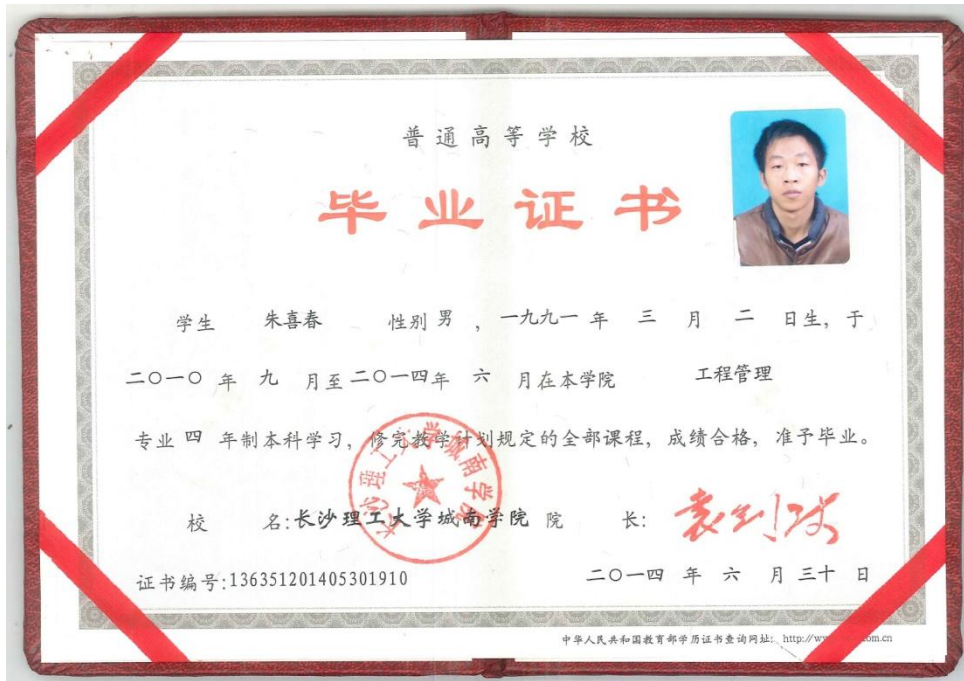 普通高等学校
毕业证书
学生 朱喜春 性别 男 , 一九九一 年 三 月 二 日生, 于
二〇一〇 年 九 月至 二〇一四年 六 月在本学院 工程管理
专业 四 年制本科学习, 修完教学计划规定的全部课程, 成绩合格, 准予毕业。
长沙理工大学城南学院
校 名:长沙理工大学城南学院 院 长:
证书编号:136351201405301910
二〇一四 年 六 月 三十 日
中华人民共和国教育部学历证书查询网址: http://